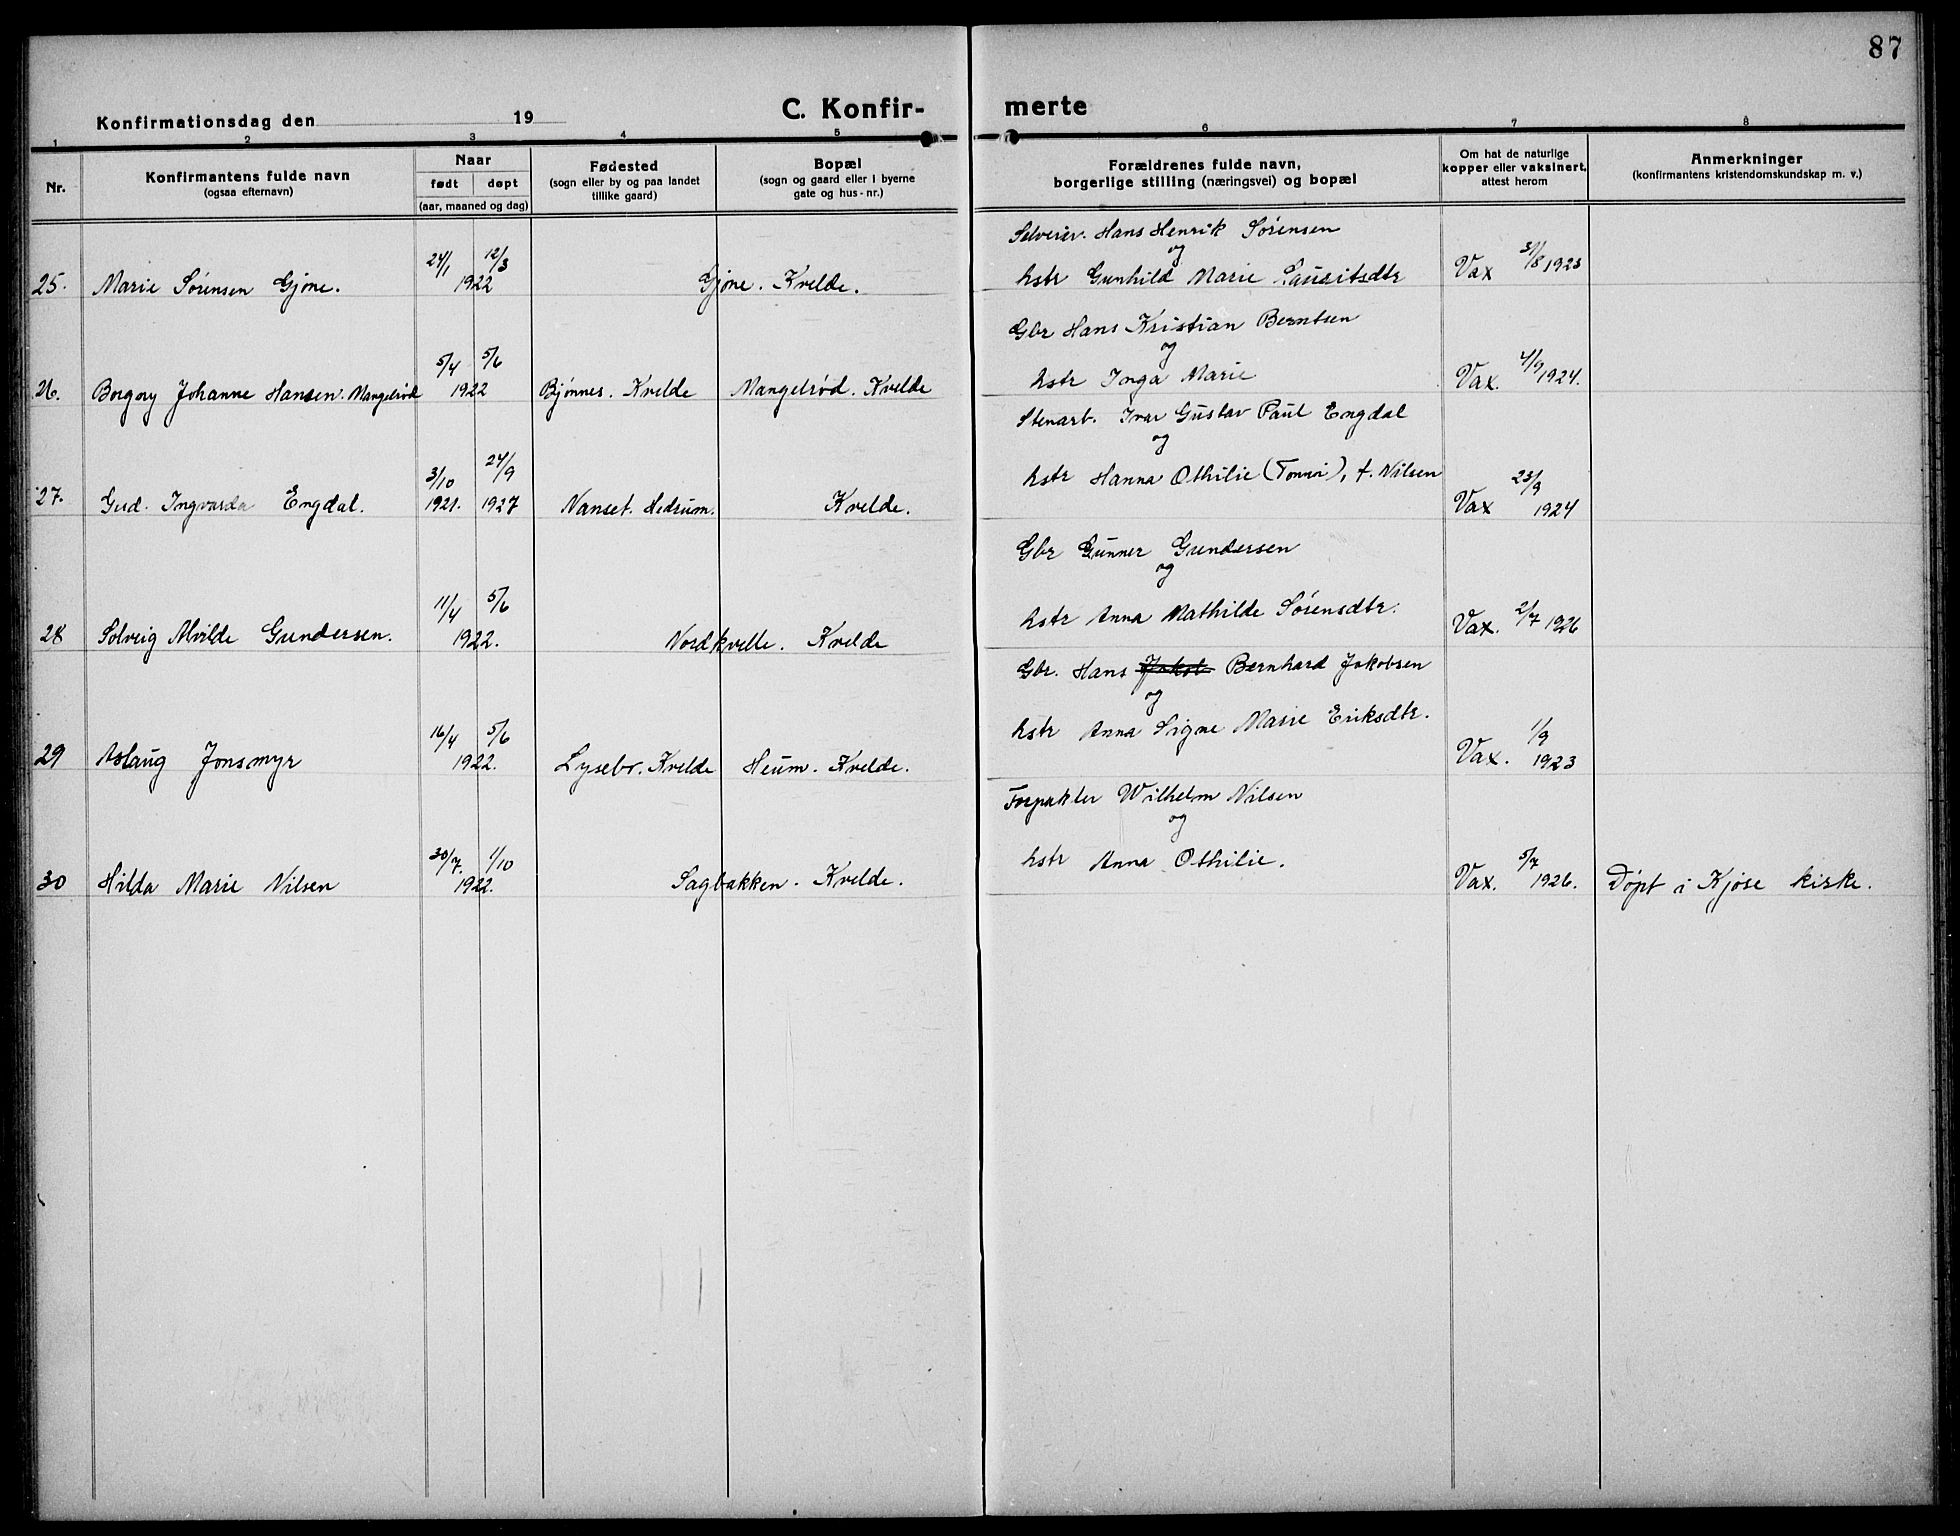 87
C. Konfir- merte
Konfirmationsdag den 19
1 2 3 4 5 6 7 8
Nr.
Konfirmantens fulde navn
(ogsaa efternavn)
Naar
født døpt
(aar, maaned og dag)
Fødested
(sogn eller by og paa landet
tillike gaard)
Bopæl
(sogn og gaard eller i byerne
gate og hus-nr.)
Forældrenes fulde navn,
borgerlige stilling (næringsvei) og bopæl
Om hat de naturlige
kopper eller vaksinert,
attest herom
Anmerkninger
(konfirmantens kristendomskundskap m. v.)
Selveier. Hans Henrik Sørensen
og
24/1 12/3 31/8 1923
25. Marie Sørensen Gjøne. 1922 Gjøne. Kvelde. hstr Gunhild Marie Lauritsdtr Vax
Gbr Hans Kristian Berntsen
og
5/4 5/6 4/9 1924.
26. Borgny Johanne Hansen. Mangelrød 1922 Bjønnes. Kvelde Mangelrød. Kvelde hstr Inga Marie Vax.
Stenarb. Ivar Gustav Paul Engdal
og
3/10 24/9 hstr Hanna Othilie (Tomine), f. Nilsen 23/9
27. Gud. Ingvarda Engdal. 1921. 1927 Nanset. Hedrum. Kvelde. Vax 1924
Gbr Gunner Gundersen
og
11/4 5/6 hstr Anna Mathilde Sørensdtr.
28 Solveig Alvilde Gundersen. 1922. Nordkvelle. Kvelde Vax. 2/7 1926
Gbr. Hans Jakob Bernhard Jakobsen
og
16/4 5/6 hstr Anna Signe Marie Eriksdtr. 1/9
29 Aslaug Jonsmyr 1922. Lysebr. Kvelde Heum. Kvelde. Vax. 1923
Forpakter Wilhelm Nilsen
og
30/7. 1/10 hstr Anna Othilie. 5/7
30 Hilda Marie Nilsen 1922. Sagbakken. Kvelde. Vax. 1926. Døpt i Kjøse kirke.